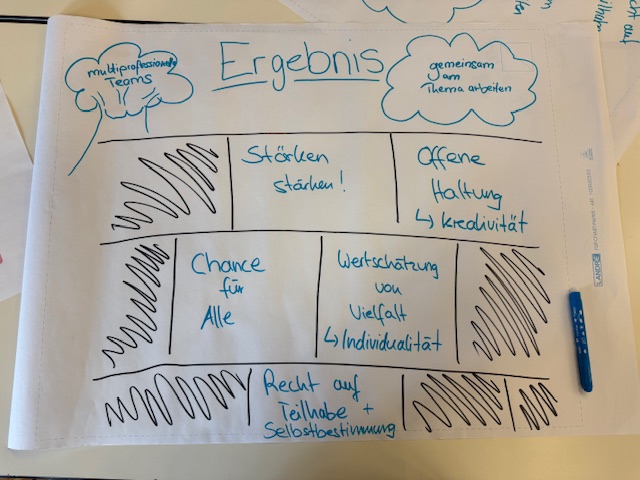 Ergebnis
multiprofessionelle
Teams
gemeinsam
am
Thema arbeiten
Stärken
stärken!
Offene
Haltung
↳ Kreativität
Chance
für
Alle
Wertschätzung
von
Vielfalt
↳ Individualität
Recht auf
Teilhabe +
Selbstbestimmung